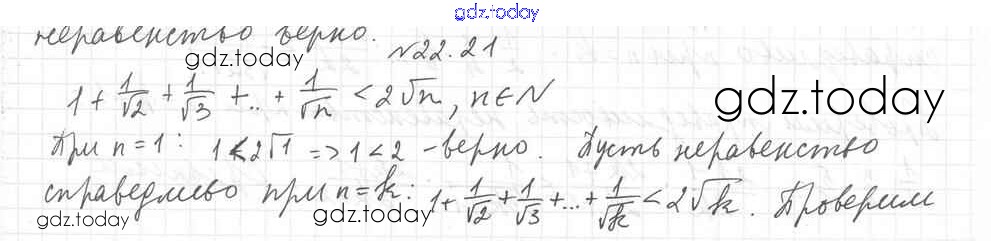 gdz.today
неравенство верно.
gdz.today
№22.21
1 + 1/√2 + 1/√3 + .. + 1/√n < 2√n, n ∈ N
gdz.today
При n=1: 1<2√1 => 1<2 - верно. Пусть неравенство
справедливо при n=k: 1+ 1/√2 + 1/√3 + ... + 1/√k < 2√k. Проверим
gdz.today
gdz.today